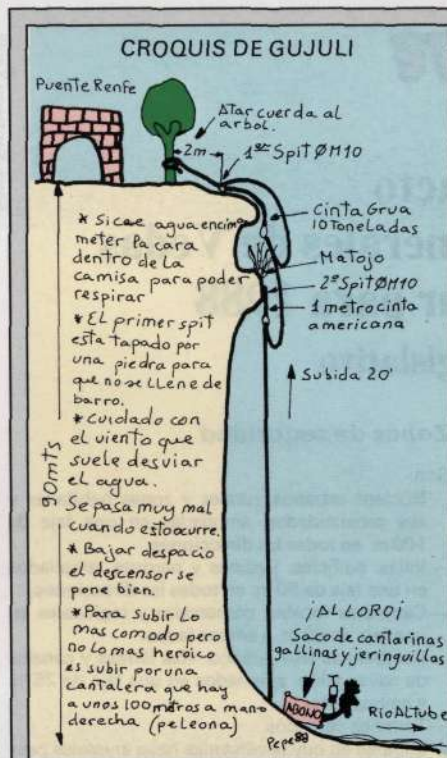 CROQUIS DE GUJULI
Puente Renfe
Atar cuerda al
arbol.
2m
1er Spit Ø M10
Cinta Grua
10 Toneladas
Matojo
2º Spit Ø M10
1 metro cinta
americana
Subida 20'
90mts
* Si cae agua encima
meter la cara
dentro de la
camisa para poder
respirar
* El primer spit
esta tapado por
una piedra para
que no se llene de
barro.
* Cuidado con
el viento que
suele desviar
el agua.
Se pasa muy mal
cuando esto ocurre.
* Bajar despacio
el descensor se
pone bien.
* Para subir lo
mas comodo pero
no lo mas heróico
es subir por una
cantalera que hay
a unos 100 metros a mano
derecha (peleona)
¡AL LORO!
Saco de cantarinas
gallinas y jeringuillas
ABONO
Rio Altube
Pepe 88